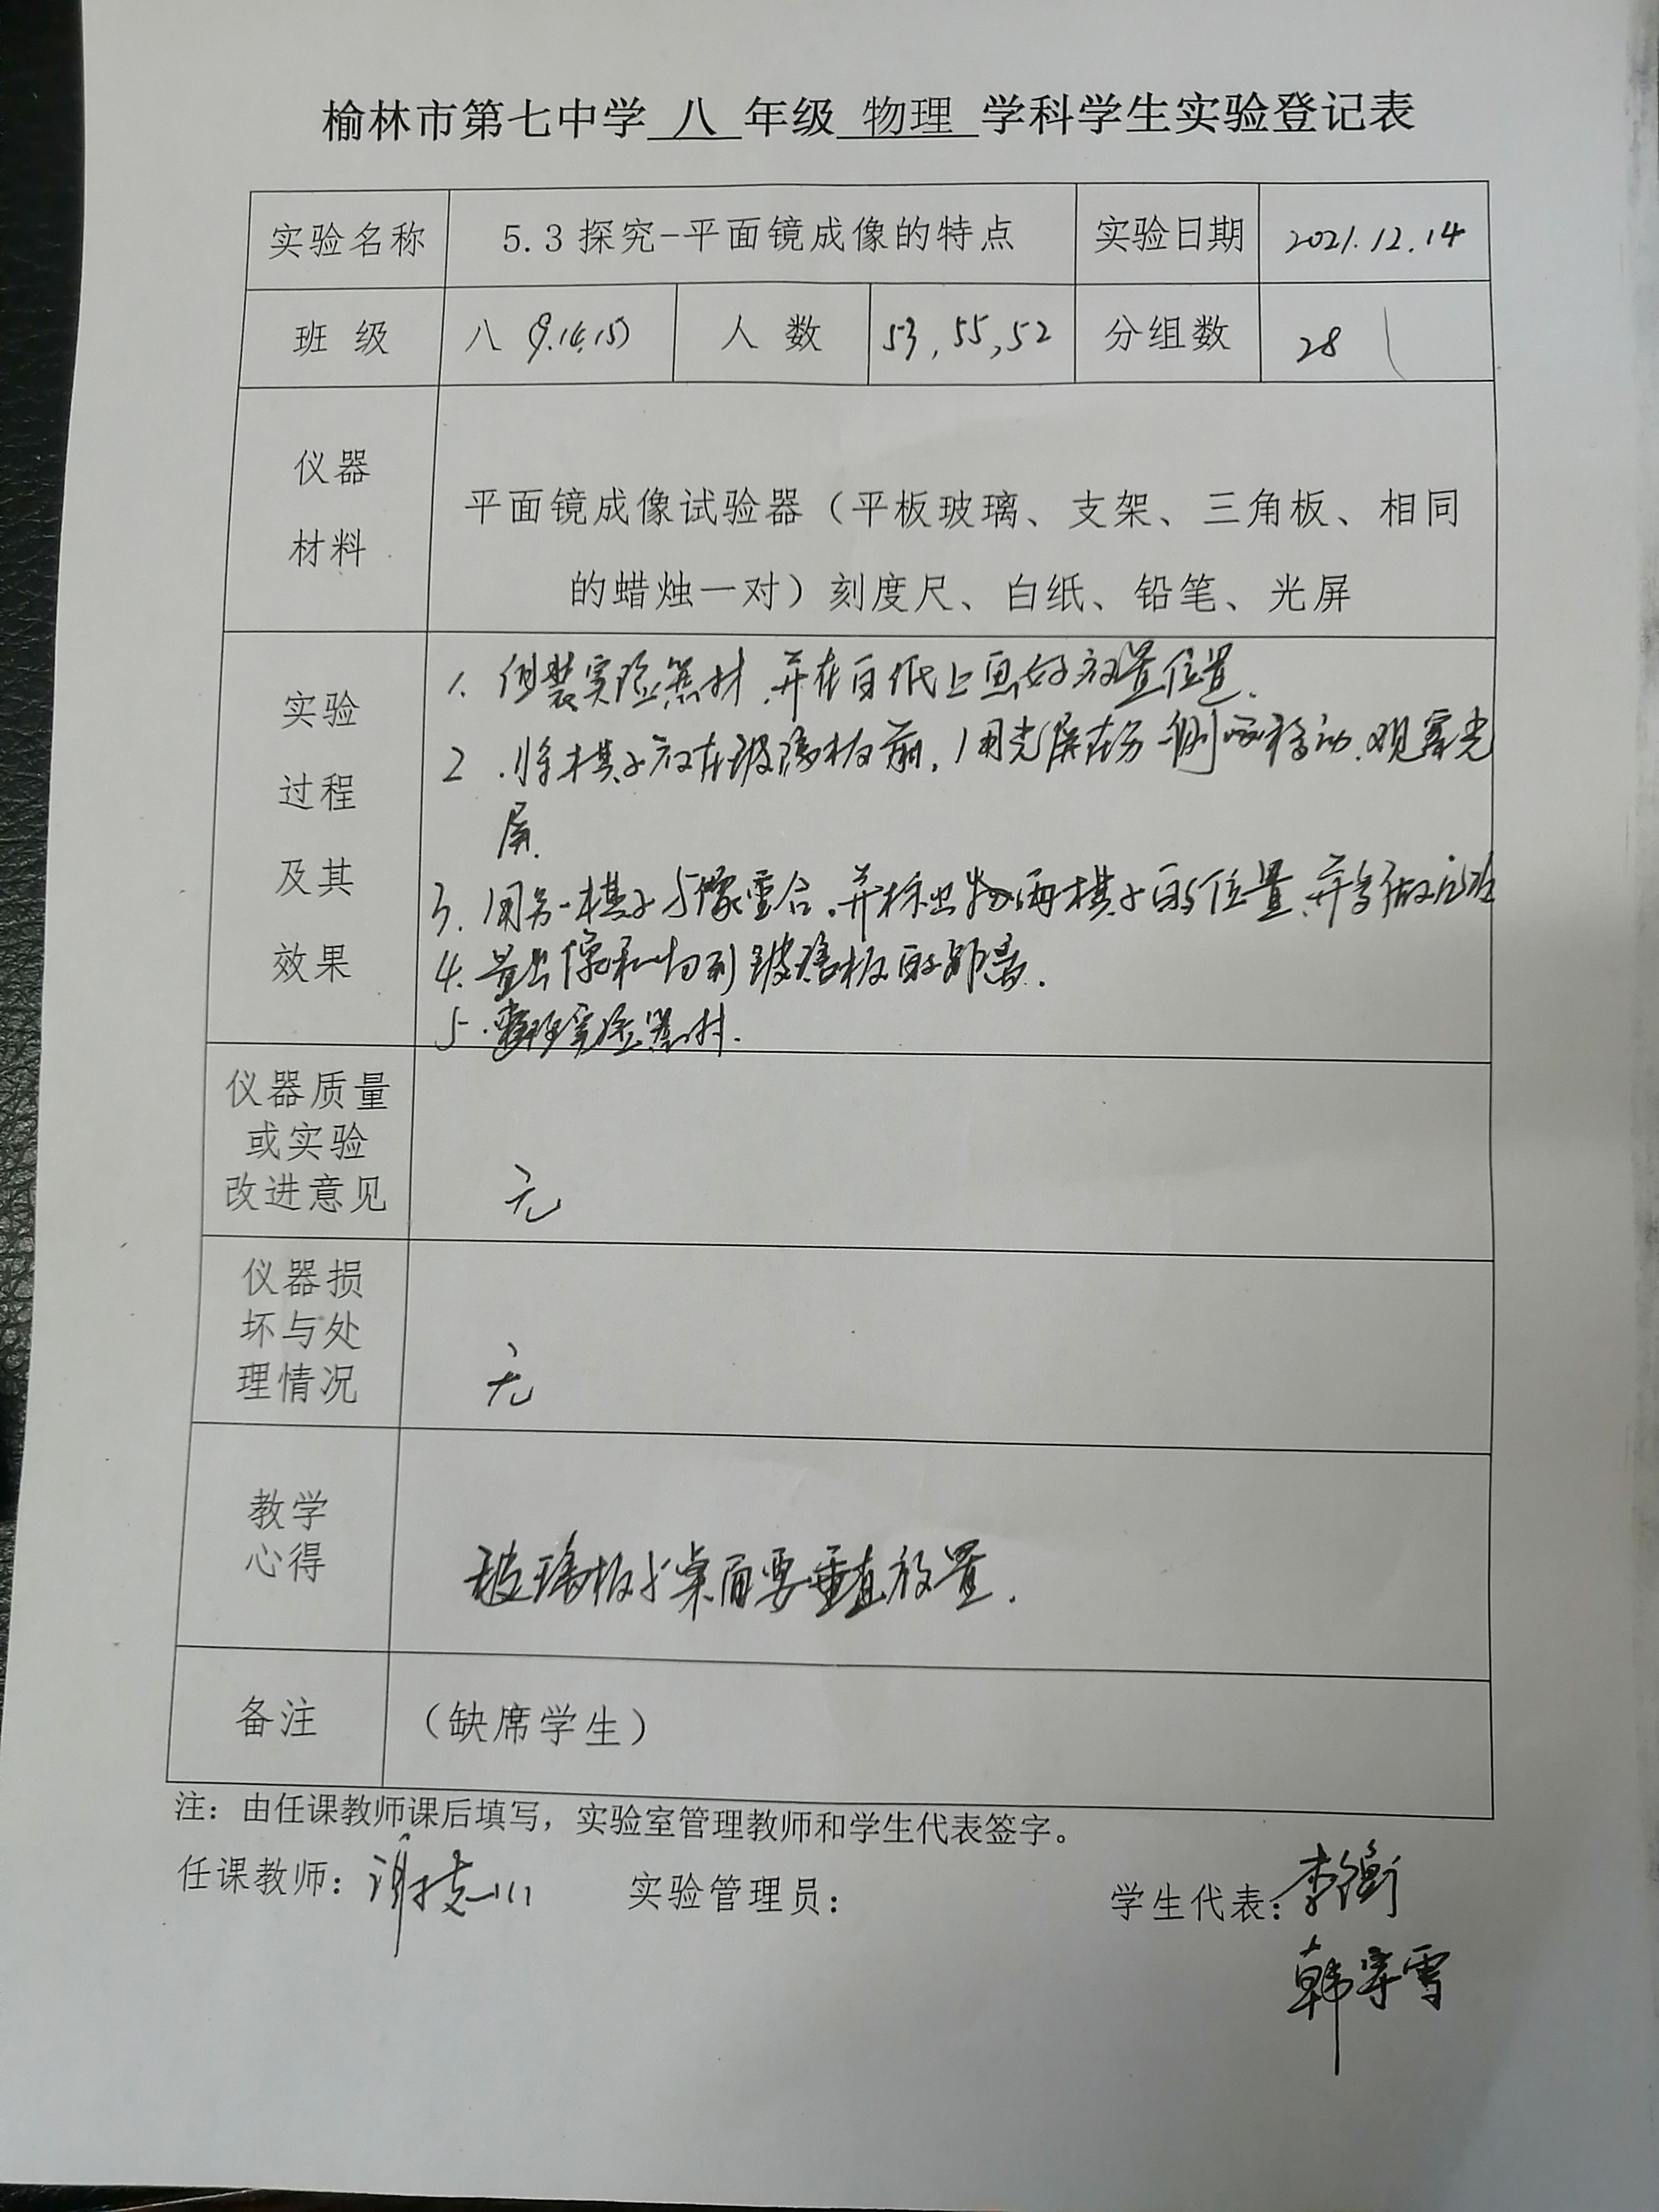 榆林市第七中学 八 年级 物理 学科学生实验登记表
实验名称 5.3探究-平面镜成像的特点 实验日期 2021.12.14
班 级 八(9.14.15) 人 数 53,55,52 分组数 28
仪器
材料
平面镜成像试验器（平板玻璃、支架、三角板、相同
的蜡烛一对）刻度尺、白纸、铅笔、光屏
实验
过程
及其
效果
1. 组装实验器材,并在白纸上画好放置位置.
2.将棋子放在玻璃板前,用光屏在另一侧移动.观察光
屏.
3.用另一棋子与像重合.并标出两棋子的位置,并多做几次
4.量出像和物到玻璃板的距离.
5.整理实验器材.
仪器质量
或实验
改进意见
无
仪器损
坏与处
理情况
无
教学
心得
玻璃板与桌面要垂直放置.
备注 （缺席学生）
注：由任课教师课后填写，实验室管理教师和学生代表签字。
任课教师： 实验管理员： 学生代表：李衡
韩宇雪